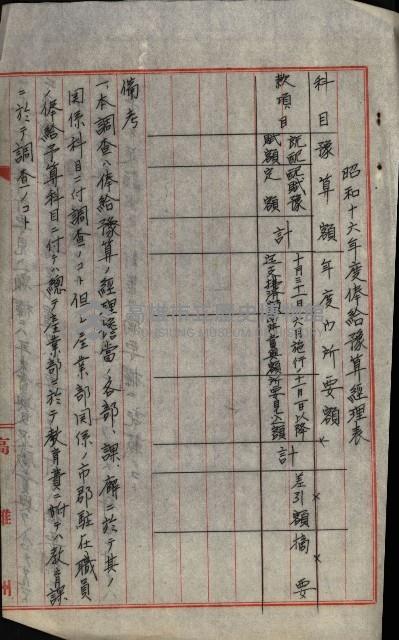 昭和十六年度俸給豫算經理表
科目
款項目
豫算額
既配賦額
配賦豫定額
計
年度內所要額
十月三十一日迄支拂済額
十一月一日以降所要見込額
計
差引額
摘要
備考
一、本調査ハ俸給豫算ノ經理擔當ノ各部、課、廳ニ於テ其ノ
関係科目ニ付調査ノコト但シ産業部関係ノ市郡駐在職員
ノ俸給予算科目ニ付テハ總テ産業部ニ於テ教育費ニ付テハ教育課
ニ於テ調査ノコト
高雄州